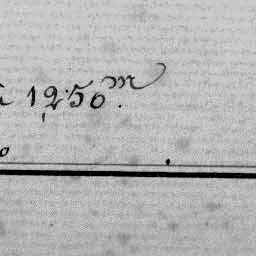 12.50 m.